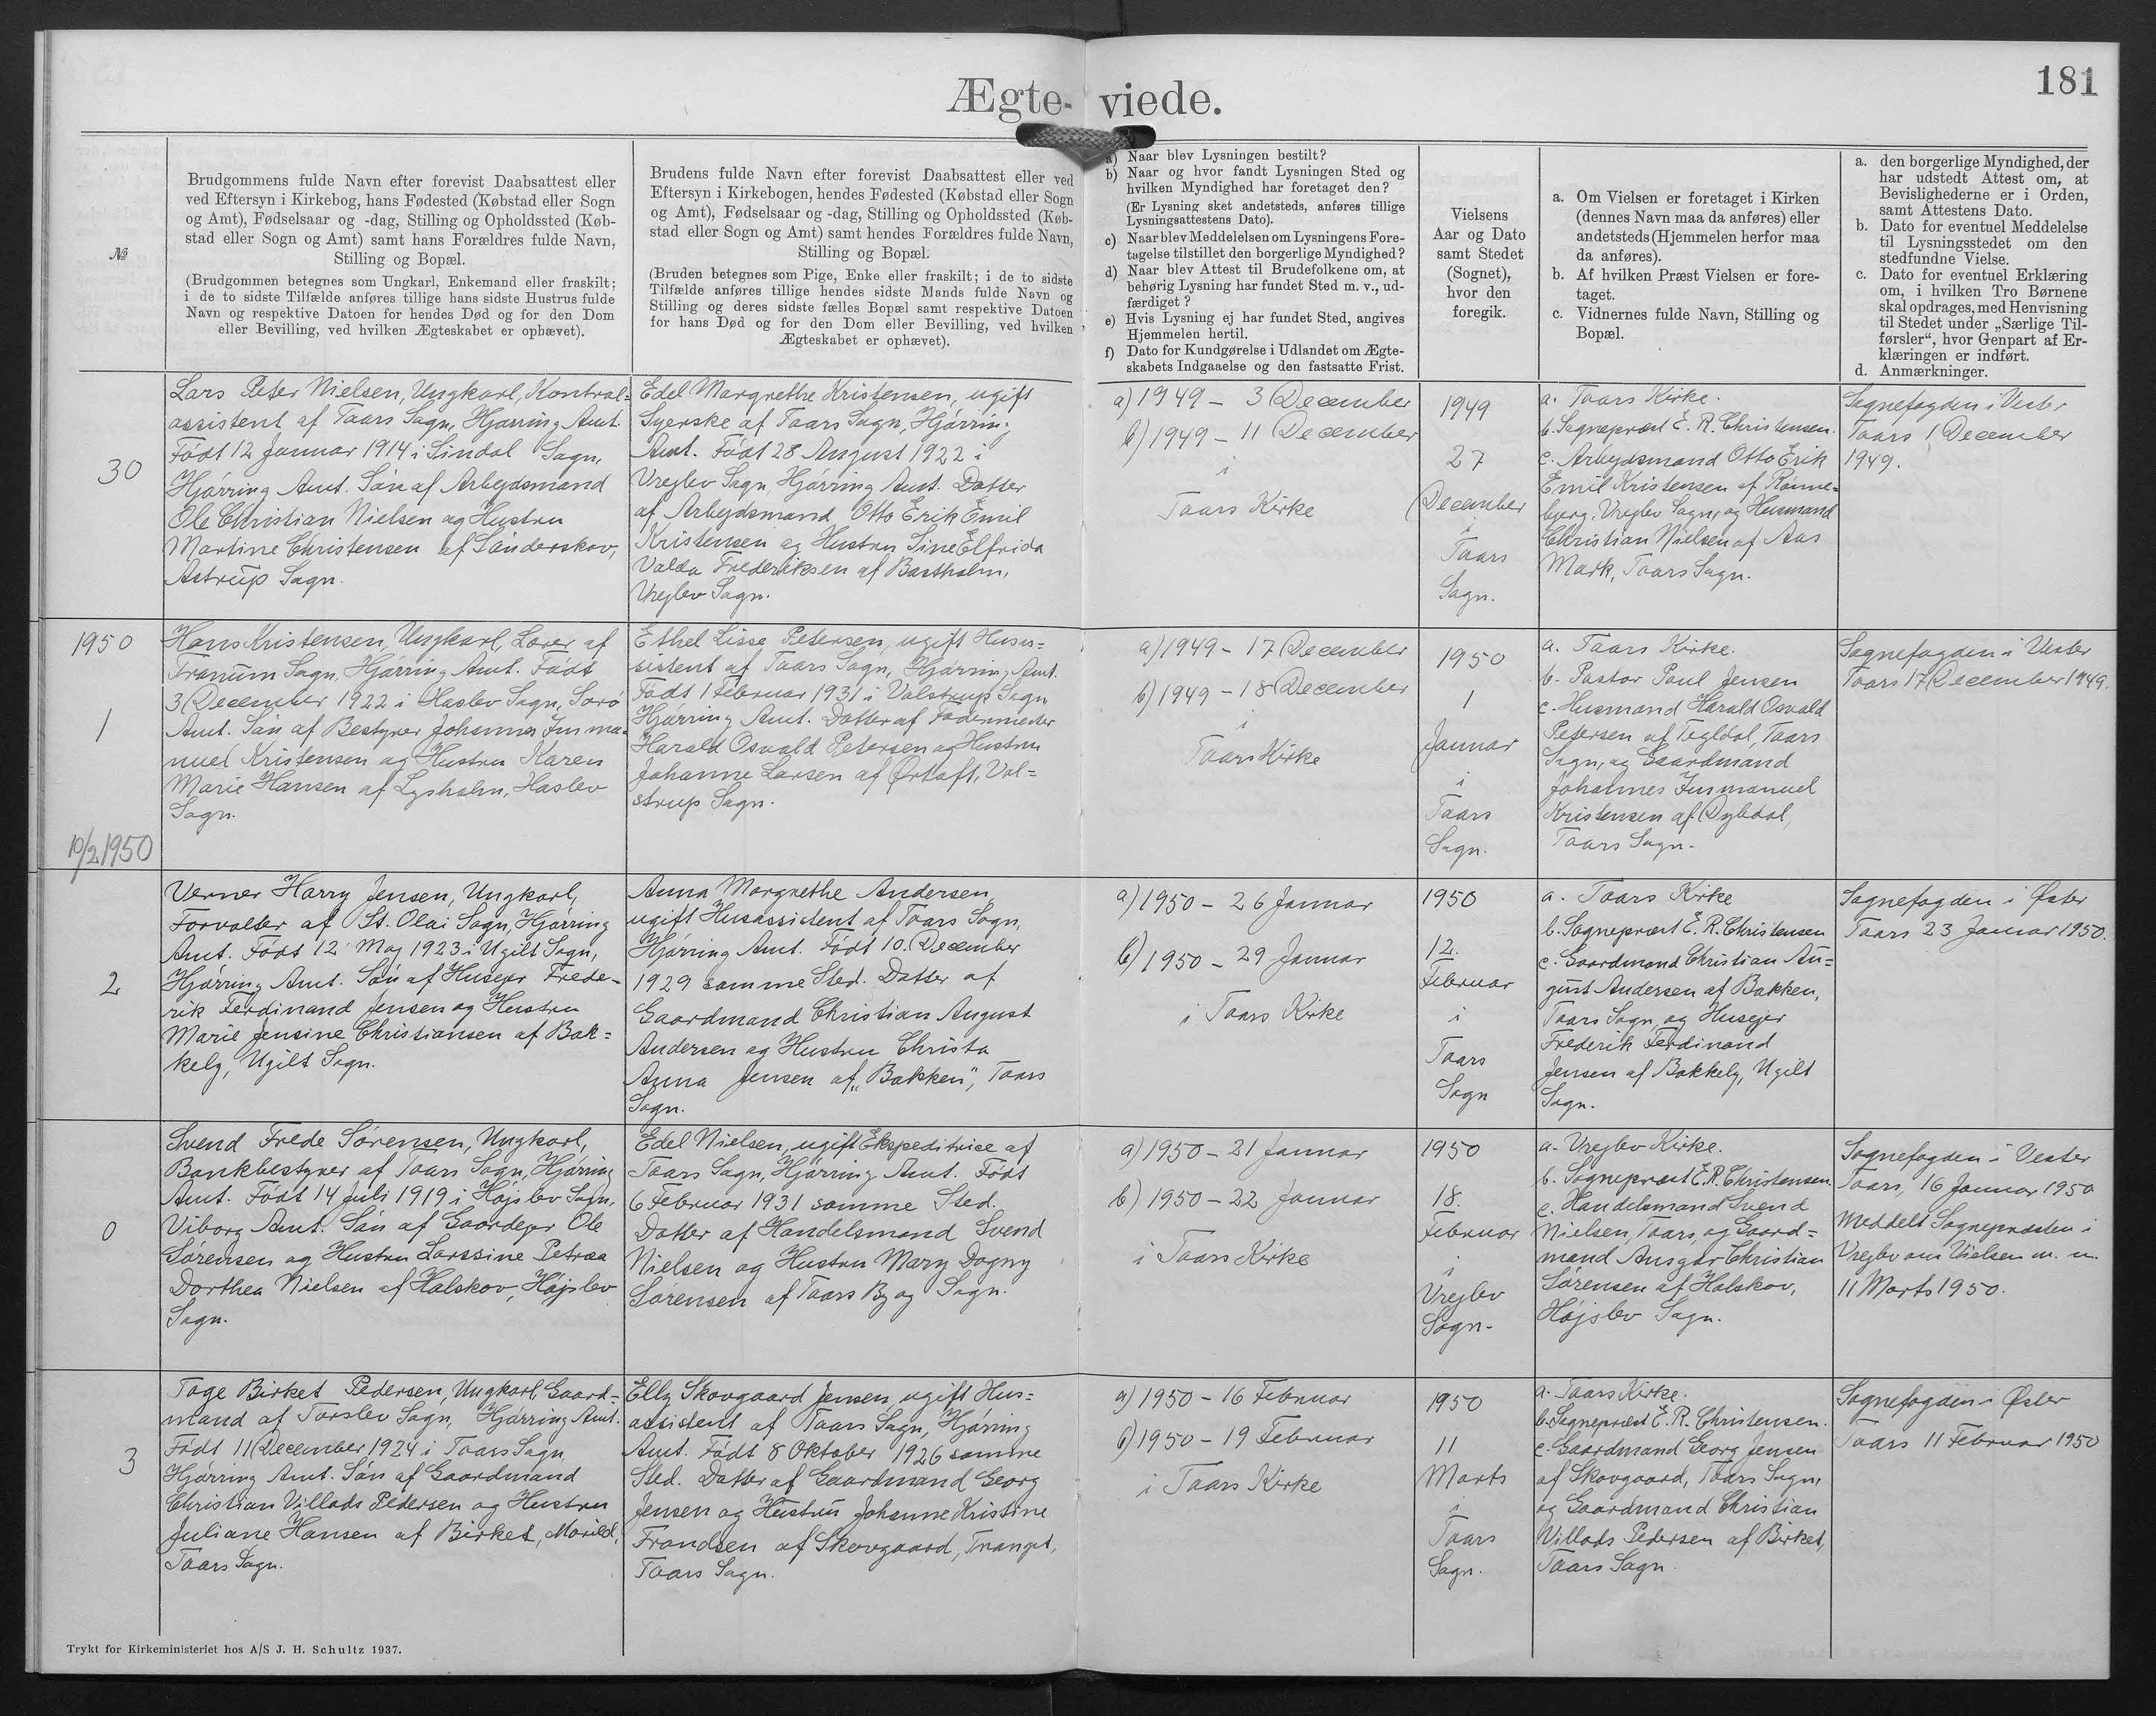 Ægte- viede.
181
№
Brudgommens fulde Navn efter forevist Daabsattest eller
ved Eftersyn i Kirkebog, hans Fødested (Købstad eller Sogn
og Amt), Fødselsaar og -dag, Stilling og Opholdssted (Køb-
stad eller Sogn og Amt) samt hans Forældres fulde Navn,
Stilling og Bopæl.
(Brudgommen betegnes som Ungkarl, Enkemand eller fraskilt;
i de to sidste Tilfælde anføres tillige hans sidste Hustrus fulde
Navn og respektive Datoen for hendes Død og for den Dom
eller Bevilling, ved hvilken Ægteskabet er ophævet).
Brudens fulde Navn efter forevist Daabsattest eller ved
Eftersyn i Kirkebogen, hendes Fødested (Købstad eller Sogn
og Amt), Fødselsaar og -dag, Stilling og Opholdssted (Køb-
stad eller Sogn og Amt) samt hendes Forældres fulde Navn,
Stilling og Bopæl.
(Bruden betegnes som Pige, Enke eller fraskilt; i de to sidste
Tilfælde anføres tillige hendes sidste Mands fulde Navn og
Stilling og deres sidste fælles Bopæl samt respektive Datoen
for hans Død og for den Dom eller Bevilling, ved hvilken
Ægteskabet er ophævet).
a) Naar blev Lysningen bestilt?
b) Naar og hvor fandt Lysningen Sted og
hvilken Myndighed har foretaget den?
(Er Lysning sket andetsteds, anføres tillige
Lysningsattestens Dato).
c) Naar blev Meddelelsen om Lysningens Fore-
tagelse tilstillet den borgerlige Myndighed?
d) Naar blev Attest til Brudefolkene om, at
behørig Lysning har fundet Sted m. v., ud-
færdiget?
e) Hvis Lysning ej har fundet Sted, angives
Hjemmelen hertil.
f) Dato for Kundgørelse i Udlandet om Ægte-
skabets Indgaaelse og den fastsatte Frist.
Vielsens
Aar og Dato
samt Stedet
(Sognet),
hvor den
foregik.
a. Om Vielsen er foretaget i Kirken
(dennes Navn maa da anføres) eller
andetsteds (Hjemmelen herfor maa
da anføres).
b. Af hvilken Præst Vielsen er fore-
taget.
c. Vidnernes fulde Navn, Stilling og
Bopæl.
a. den borgerlige Myndighed, der
har udstedt Attest om, at
Bevislighederne er i Orden,
samt Attestens Dato.
b. Dato for eventuel Meddelelse
til Lysningsstedet om den
stedfundne Vielse.
c. Dato for eventuel Erklæring
om, i hvilken Tro Børnene
skal opdrages, med Henvisning
til Stedet under „Særlige Til-
førsler“, hvor Genpart af Er-
klæringen er indført.
d. Anmærkninger.
30
Lars Peter Nielsen, Ungkarl, Kontrol-
assistent af Taars Sogn, Hjørring Amt.
Født 12 Januar 1914 i Sindal Sogn,
Hjørring Amt. Søn af Arbejdsmand
Ole Christian Nielsen og Hustru
Martine Christensen af Sønderskov,
Astrup Sogn.
Edel Margrethe Kristensen, ugift
Syerske af Taars Sogn, Hjørring
Amt. Født 28 August 1922 i
Vrejlev Sogn, Hjørring Amt. Datter
af Arbejdsmand Otto Erik Emil
Kristensen og Hustru Sine Elfrida
Valda Frederiksen af Bastholm,
Vrejlev Sogn.
a) 1949 - 3 December
b) 1949 - 11 December
i
Taars Kirke
1949
27
December
i
Taars
Sogn.
a. Taars Kirke.
b. Sognepræst E. R. Christensen.
c. Arbejdsmand Otto Erik
Emil Kristensen af Rønne=
bjerg, Vrejlev Sogn, og Husmand
Christian Nielsen af Aas
Mark, Taars Sogn.
Sognefogden i Vester
Taars 1 December
1949.
1950
1
10/2 1950
Hans Kristensen, Ungkarl, Lærer af
Tranum Sogn, Hjørring Amt. Født
3 December 1922 i Haslev Sogn, Sorø
Amt. Søn af Bestyrer Johannes Imma=
nuel Kristensen og Hustru Karen
Marie Hansen af Lysholm, Haslev
Sogn.
Ethel Lisse Petersen, ugift Husas=
sistent af Taars Sogn, Hjørring Amt.
Født 1 Februar 1931 i Volstrup Sogn
Hjørring Amt. Datter af Fodermester
Harald Osvald Petersen og Hustru
Johanne Larsen af Ørtoft, Vol=
strup Sogn.
a) 1949 - 17 December
b) 1949 - 18 December
i
Taars Kirke
1950
1
Januar
i
Taars
Sogn.
a. Taars Kirke.
b. Pastor Poul Jensen
c. Husmand Harald Osvald
Petersen af Tegldal, Taars
Sogn, og Gaardmand
Johannes Immanuel
Kristensen af Dybdal,
Taars Sogn.
Sognefogden i Vester
Taars 17 December 1949.
2
Verner Harry Jensen, Ungkarl,
Forvalter af St. Olai Sogn, Hjørring
Amt. Født 12 Maj 1923 i Ugilt Sogn,
Hjørring Amt. Søn af Husejer Frede-
rik Ferdinand Jensen og Hustru
Marie Jensine Christiansen af Bak=
kely, Ugilt Sogn.
Anna Margrethe Andersen
ugift Husassistent af Taars Sogn,
Hjørring Amt. Født 10. December
1929 samme Sted. Datter af
Gaardmand Christian August
Andersen og Hustru Christa
Anna Jensen af „Bakken", Taars
Sogn.
a) 1950 - 26 Januar
b) 1950 - 29 Januar
i Taars Kirke
1950
12.
Februar
i
Taars
Sogn
a. Taars Kirke
b. Sognepræst E. R. Christensen
c. Gaardmand Christian Au=
gust Andersen af Bakken,
Taars Sogn og Husejer
Frederik Ferdinand
Jensen af Bakkely, Ugilt
Sogn.
Sognefogden i Øster
Taars 23 Januar 1950.
0
Svend Frede Sørensen, Ungkarl,
Bankbestyrer af Taars Sogn, Hjørring
Amt. Født 14 Juli 1919 i Højslev Sogn,
Viborg Amt. Søn af Gaardejer Ole
Sørensen og Hustru Larssine Petræa
Dorthea Nielsen af Halskov, Højslev
Sogn.
Edel Nielsen, ugift Ekspeditrice af
Taars Sogn, Hjørring Amt. Født
6 Februar 1931 samme Sted.
Datter af Handelsmand Svend
Nielsen og Hustru Mary Dagny
Sørensen af Taars By og Sogn.
a) 1950 - 21 Januar
b) 1950 - 22 Januar
i Taars Kirke
1950
18.
Februar
i
Vrejlev
Sogn.
a. Vrejlev Kirke.
b. Sognepræst E. R. Christensen.
c. Handelsmand Svend
Nielsen, Taars, og Gaard=
mand Ansgar Christian
Sørensen af Halskov,
Højslev Sogn.
Sognefogden i Vester
Taars, 16 Januar 1950
Meddelt Sognepræsten i
Vrejlev om Vielsen m. m.
11 Marts 1950.
3
Tage Birket Pedersen, Ungkarl, Gaard-
mand af Torslev Sogn, Hjørring Amt.
Født 11 December 1924 i Taars Sogn
Hjørring Amt. Søn af Gaardmand
Christian Villads Pedersen og Hustru
Juliane Hansen af Birket, Morild,
Taars Sogn.
Elly Skovgaard Jensen, ugift Hus=
assistent af Taars Sogn, Hjørring
Amt. Født 8 Oktober 1926 samme
Sted. Datter af Gaardmand Georg
Jensen og Hustru Johanne Kristine
Frandsen af Skovgaard, Tranget,
Taars Sogn.
a) 1950 - 16 Februar
b) 1950 - 19 Februar
i Taars Kirke
1950
11
Marts
i
Taars
Sogn.
a. Taars Kirke.
b. Sognepræst E. R. Christensen.
c. Gaardmand Georg Jensen
af Skovgaard, Taars Sogn,
og Gaardmand Christian
Villads Pedersen af Birket,
Taars Sogn.
Sognefogden i Øster
Taars 11 Februar 1950
Trykt for Kirkeministeriet hos A/S J. H. Schultz 1937.